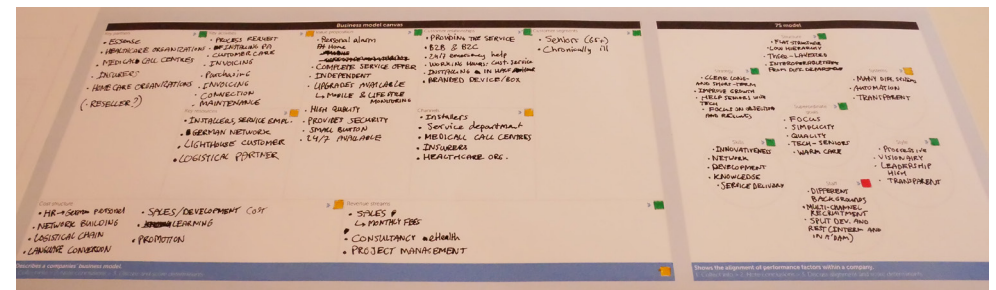 Business model canvas
Key partners
• ESSENCE
• HEALTHCARE ORGANIZATIONS
• MEDICAL CALL CENTRES
• INSURERS
• HOME CARE ORGANIZATIONS
(• RESELLER?)
Key activities
• PROCESS REQUEST
• INSTALLING PA
• CUSTOMER CARE
• INVOICING
• Purchasing
• INVOICING
• CONNECTION
• MAINTENANCE
Key resources
• INSTALLERS, SERVICE EMPL.
• GERMAN NETWORK
• LIGHTHOUSE CUSTOMER
• LOGISTICAL PARTNER
Value proposition
• Personal alarm
At Home
• COMPLETE SERVICE OFFER
• INDEPENDENT
• UPGRADES AVAILABLE
↳ MOBILE & LIFESTYLE
MONITORING
• HIGH QUALITY
• PROVIDES SECURITY
• SMALL BUTTON
• 24/7 AVAILABLE
Customer relationships
• PROVIDING THE SERVICE
• B2B & B2C
• 24/7 emergency help
• WORKING HOURS CUST. SERVICE
• INSTALLING IN
• BRANDED DEVICE/BOX
Channels
• Installers
• Service department
• MEDICALL CALL CENTRES
• INSURERS
• HEALTHCARE ORG.
Customer segments
• Seniors (65+)
• Chronically ill
Cost structure
• HR → German personel
• NETWORK BUILDING
• LOGISTICAL CHAIN
• LANGUAGE CONVERSION
• SALES/DEVELOPMENT COST
• LEARNING
• PROMOTION
Revenue streams
• SALES &
↳ MONTHLY FEES
• CONSULTANCY eHealth
• PROJECT MANAGEMENT
Describes a companies' business model.
7S model
Structure
• FLAT STRUCTURE
• LOW HIERARCHY
• THREE-LAYERED
FROM DIFF. DEPARTMENTS
Strategy
• CLEAR LONG-
AND SHORT-TERM
• IMPROVE GROWTH
• HELP SENIORS WITH
TECH
• FOCUS ON OBJECTIVES
AND RESULTS
Systems
• MANY DIFF. SYSTEMS
• AUTOMATION
• TRANSPARENT
Superordinate
goals
• FOCUS
• SIMPLICITY
• QUALITY
• TECH-SENIORS
• WARM CARE
Skills
• INNOVATIVENESS
• NETWORK
• DEVELOPMENT
• KNOWLEDGE
• SERVICE DELIVERY
Style
• PROGRESSIVE
• VISIONAIRY
• LEADERSHIP
HIGH
• TRANSPARENT
Staff
• DIFFERENT
BACKGROUNDS
• MULTI-CHANNEL
RECRUITMENT
• SPLIT DEV. AND
REST (INTERN. AND
IN A'DAM)
Shows the alignment of performance factors within a company.